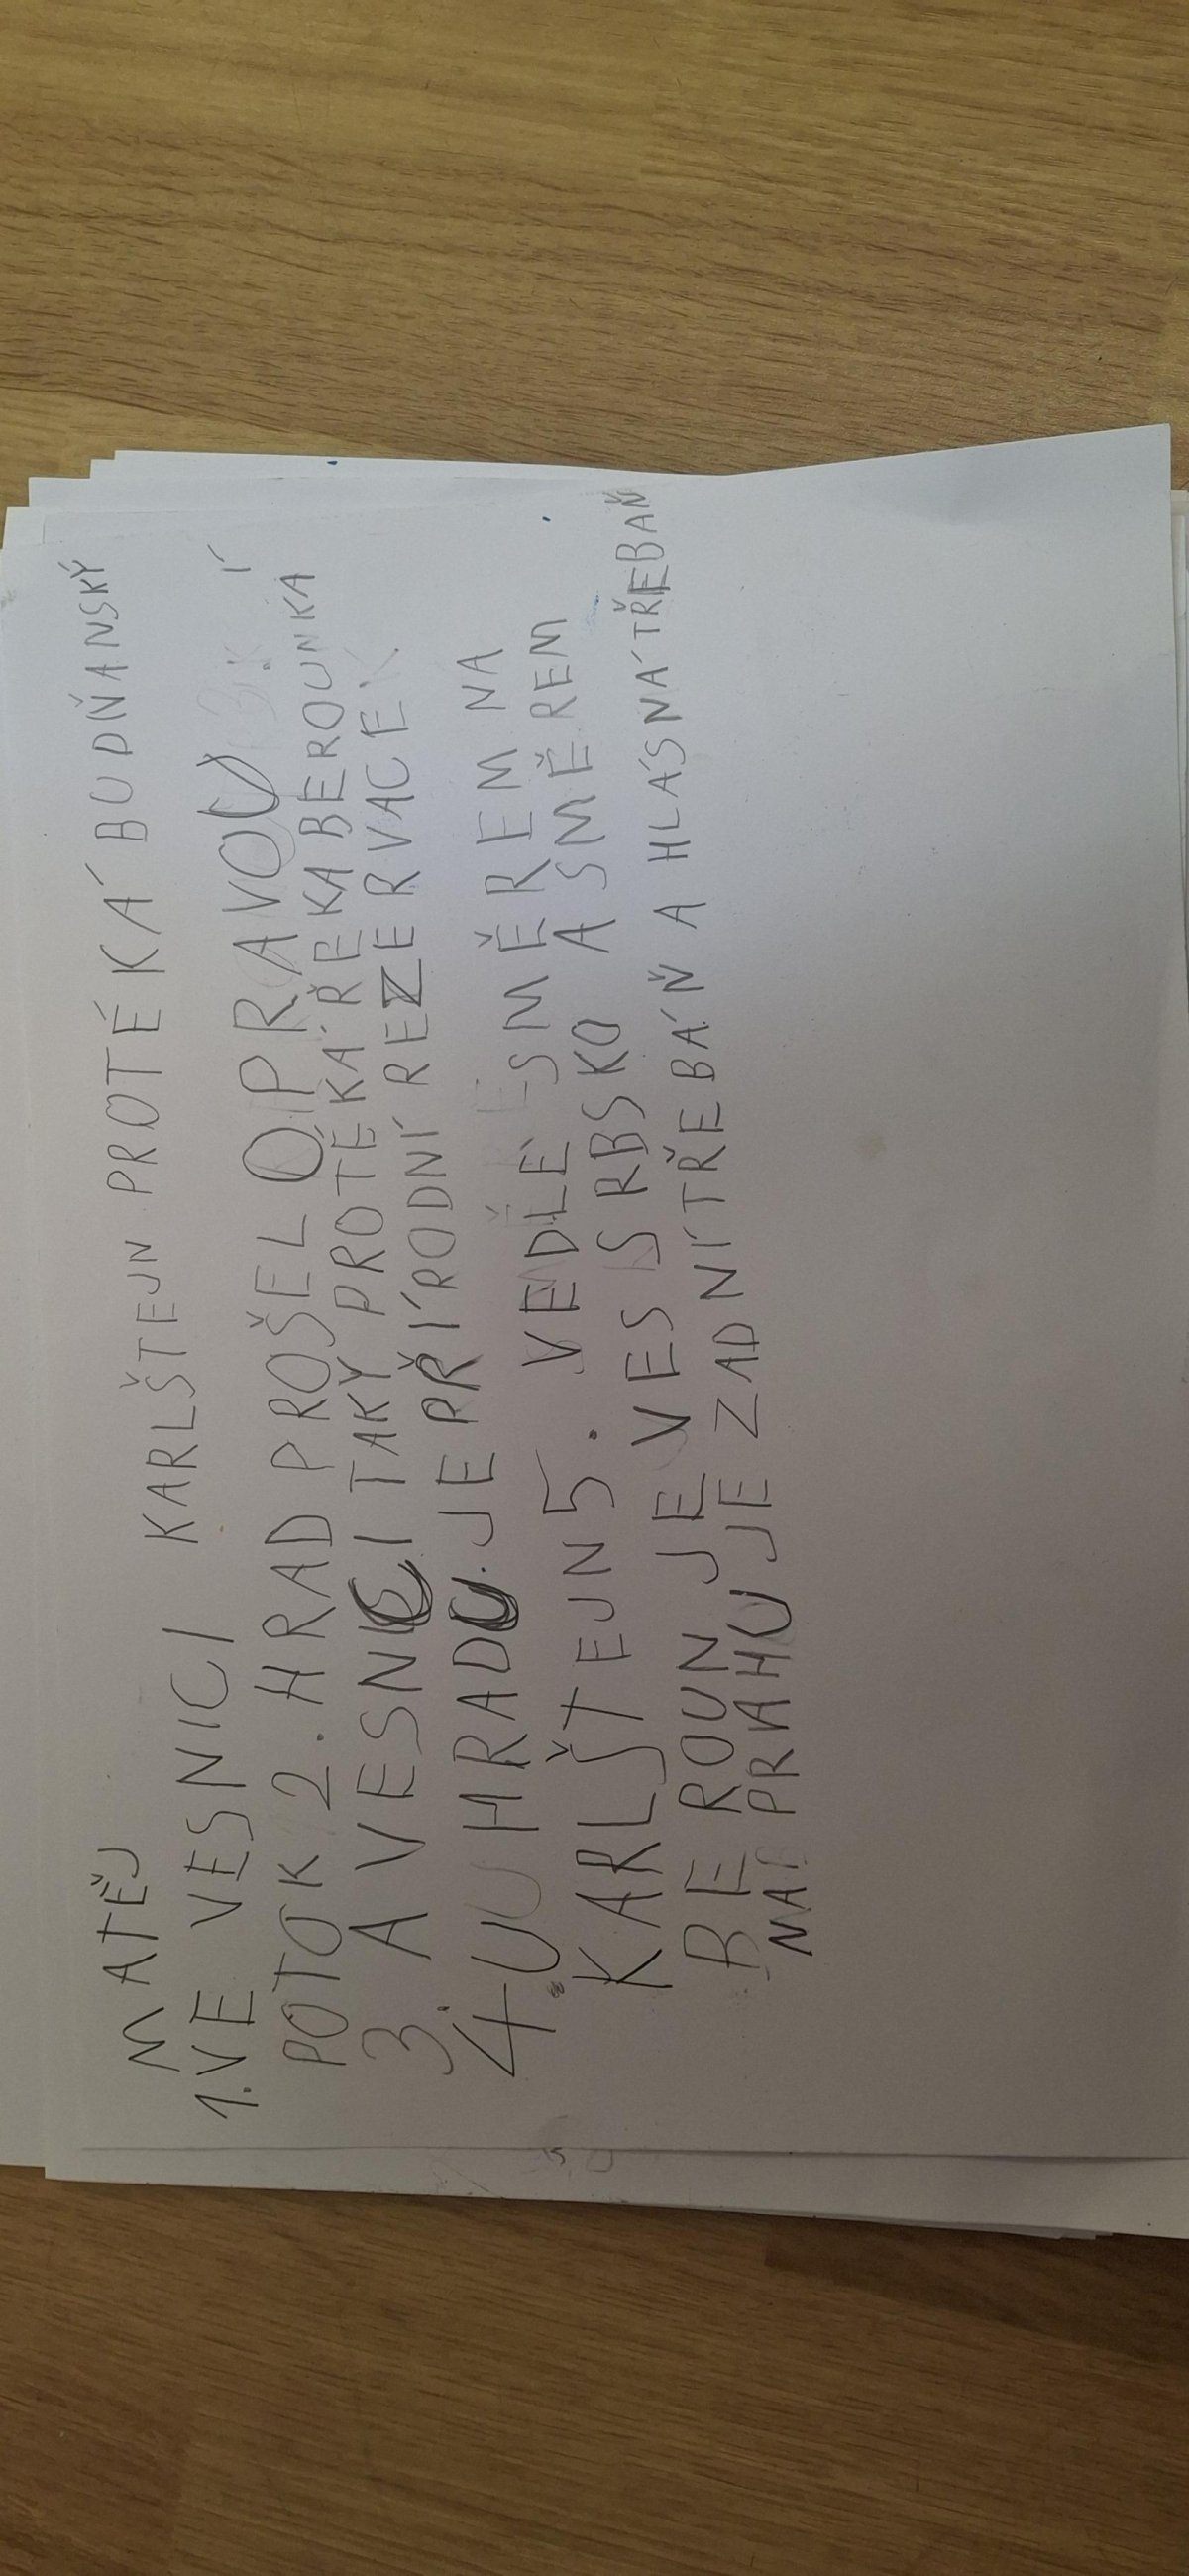 MATĚJ
1. VE VESNICI KARLŠTEJN PROTÉKÁ BUDŇANSKÝ
POTOK 2. HRAD PROŠEL OPRAVOU
3. A VESNICÍ TAKY PROTÉKÁ ŘEKA BEROUNKA
4. U HRADU JE PŘÍRODNÍ REZERVACE
KARLŠTEJN 5. VEDLE SMĚREM NA
BEROUN JE VES SRBSKO A SMĚREM
NA PRAHU JE ZADNÍ TŘEBÁŇ A HLÁSNÁ TŘEBAŇ